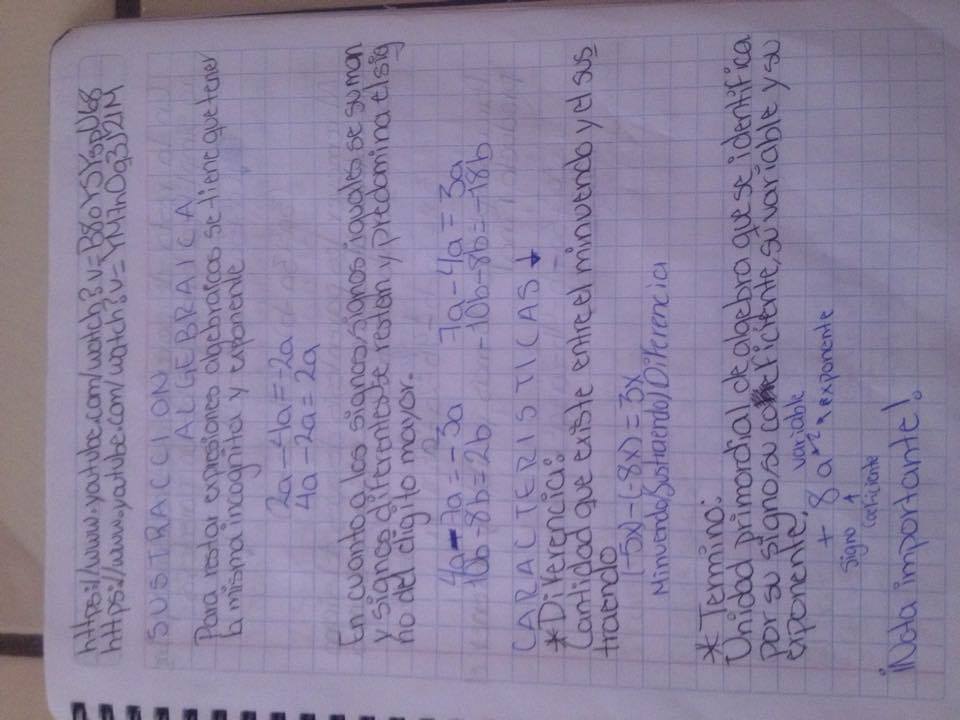 https://www.youtube.com/watch?v=B8orSYspU68
https://www.youtube.com/watch?v=YM7nOq3J21M
SUSTRACCION
ALGEBRAICA
Para restar expresiones algebraicas se tiene que tener
la misma incognita y exponente
2a - 4a = -2a
4a - 2a = 2a
En cuanto a los signos/signos iguales se suman
y signos diferentes se restan y predomina el sig
no del digito mayor.
4a - 7a = -3a 7a - 4a = 3a
10b - 8b = 2b -10b - 8b = -18b
CARACTERISTICAS ↓
* Diferencia:
Cantidad que existe entre el minuendo y el sus
traendo
(-5x) - (-8x) = 3x
Minuendo/Sustraendo/Diferencia
* Termino:
Unidad primordial de algebra que se identifica
por su signo, su coeficiente, su variable y su
exponente,
variable
+ 8 a² → exponente
signo
coeficiente
¡Nota importante!